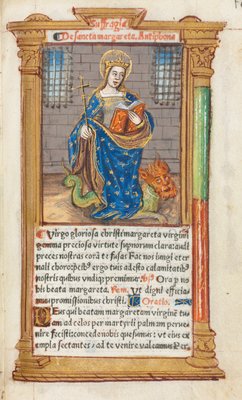 Suffragia
De sancta margareta. Antiphona
Virgo gloriosa christi margareta virginũ
gemma preciosa virtute supnorum clara: audi
preces nostras corã te fusas Fac nos iungi eter
nali choro: spes ergo tuis adesto
nostris quibus undiqȝ premimur. Ora p no
bis beata margareta. Ut digni efficia
mur promissionibus christi. Oratio.
Deus qui beatam margaretam virginẽ tuã
ad celos per martyrii palmam per
venire fecisti: concede nobis quesumus: ut eius ex
empla sectantes, ad te venire valeamus Per